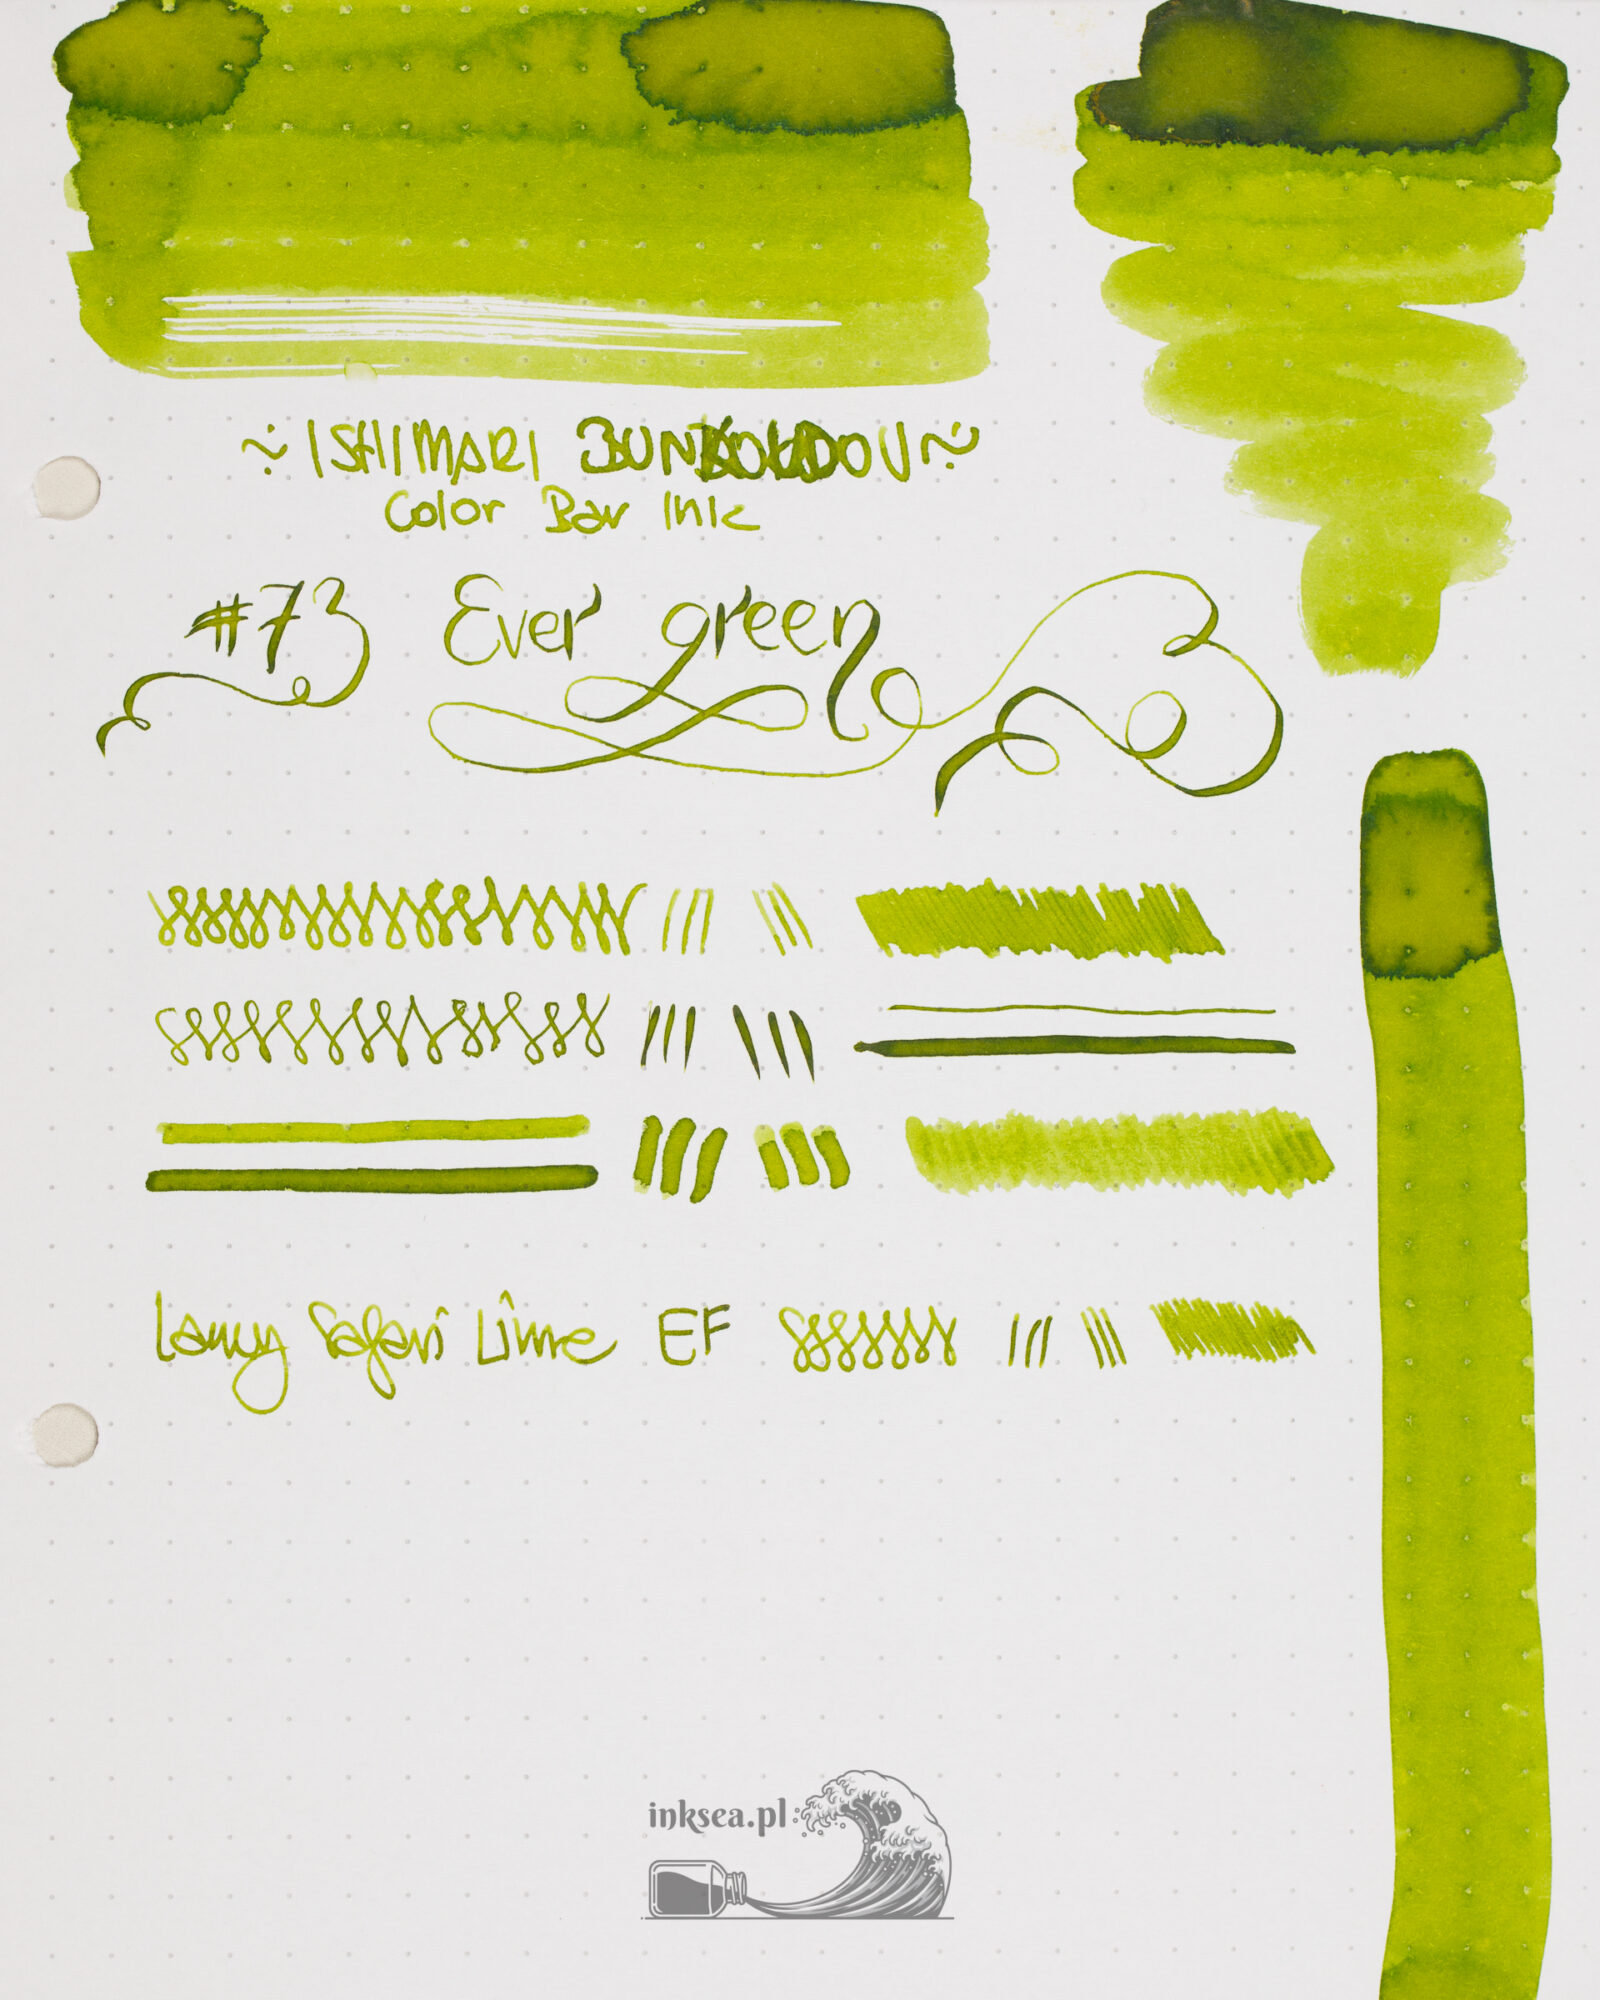 ~ ISHIMARI BUNKOUDOU ~
Color Bar Ink
#73 Ever green
Lamy Safari Lime EF
inksea.pl